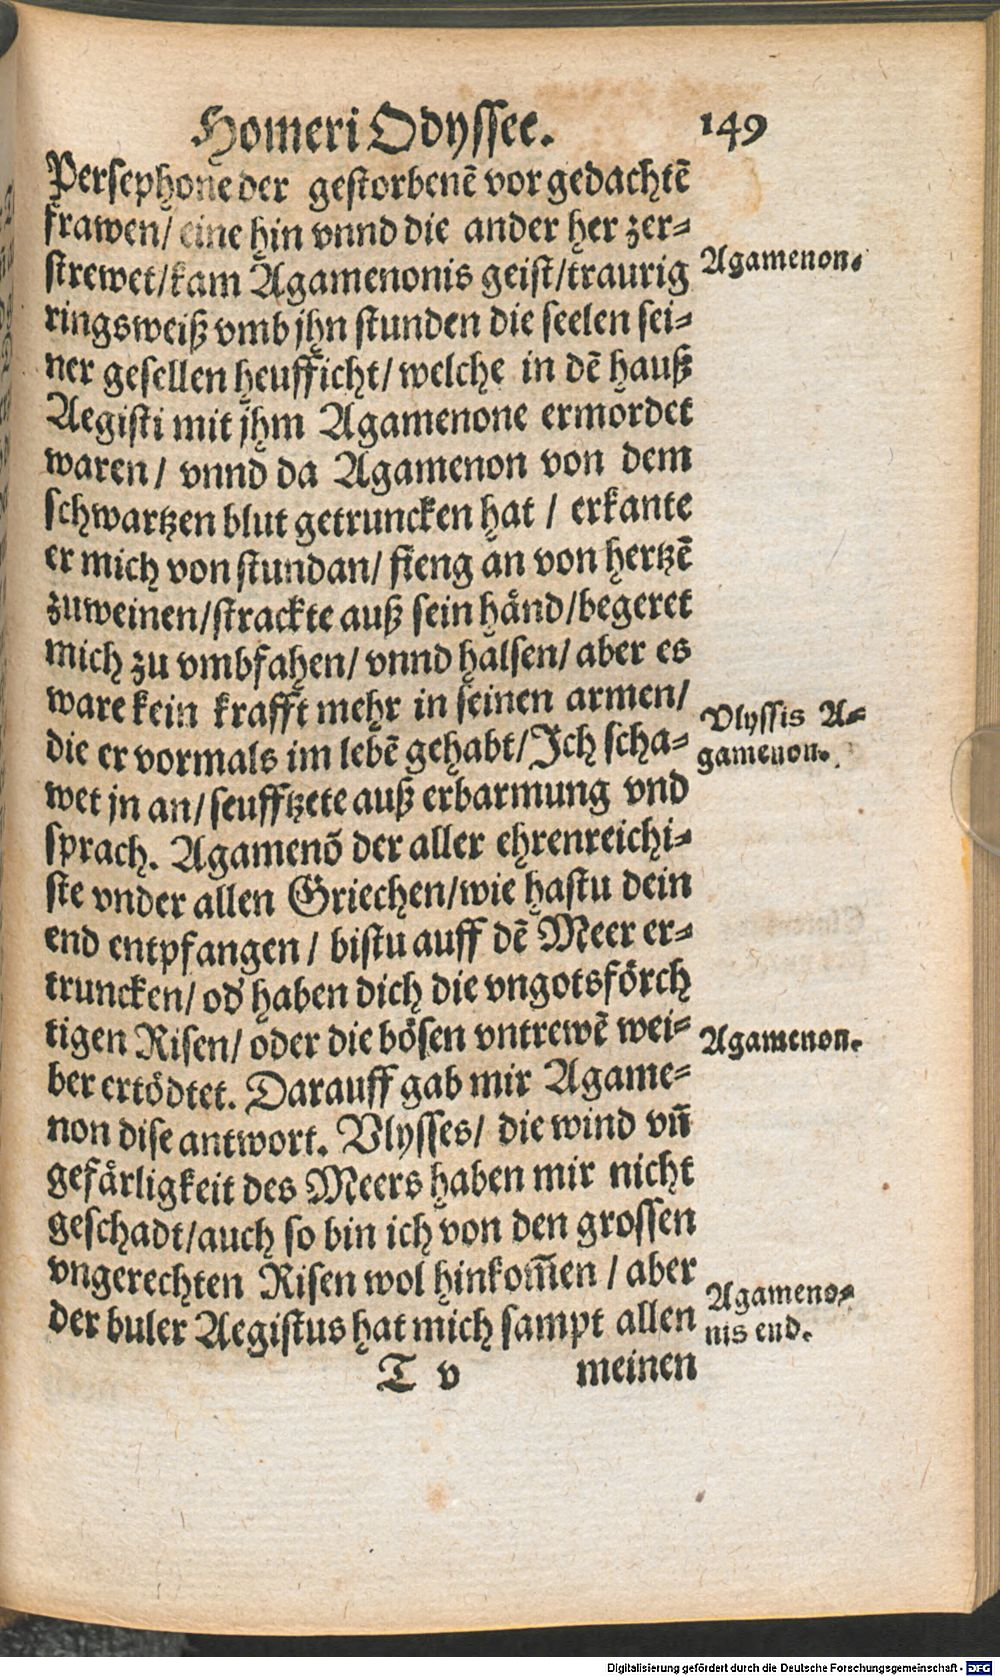 Homeri Odyssee. 149
Persephone der gestorbenē vor gedachtē
frawen/ eine hin vnnd die ander her zer⸗
strewet/kam Agamenonis geist/traurig
Agamenon.
ringsweiß vmb jhn stunden die seelen sei⸗
ner gesellen heufficht/ welche in dē hauß
Aegisti mit jhm Agamenone ermordet
waren/ vnnd da Agamenon von dem
schwartzen blut getruncken hat / erkante
er mich von stundan/ fieng an von hertzē
zuweinen/strackte auß sein händ/begeret
mich zu vmbfahen/ vnnd halsen/ aber es
ware kein krafft mehr in seinen armen/
die er vormals im lebē gehabt/Ich scha⸗
Vlyssis A⸗
gamenon.
wet jn an/ seufftzete auß erbarmung vnd
sprach. Agamenō der aller ehrenreichi⸗
ste vnder allen Griechen/wie hastu dein
end entpfangen / bistu auff dē Meer er⸗
truncken/ od' haben dich die vngotsförch
tigen Risen/ oder die bösen vntrewē wei⸗
ber ertödtet. Darauff gab mir Agame⸗
Agamenon.
non dise antwort. Vlysses/ die wind vn̄
gefärligkeit des Meers haben mir nicht
geschadt/auch so bin ich von den grossen
vngerechten Risen wol hinkom̄en / aber
der buler Aegistus hat mich sampt allen
Agameno⸗
nis end.
T v meinen
Digitalisierung gefördert durch die Deutsche Forschungsgemeinschaft - DFG